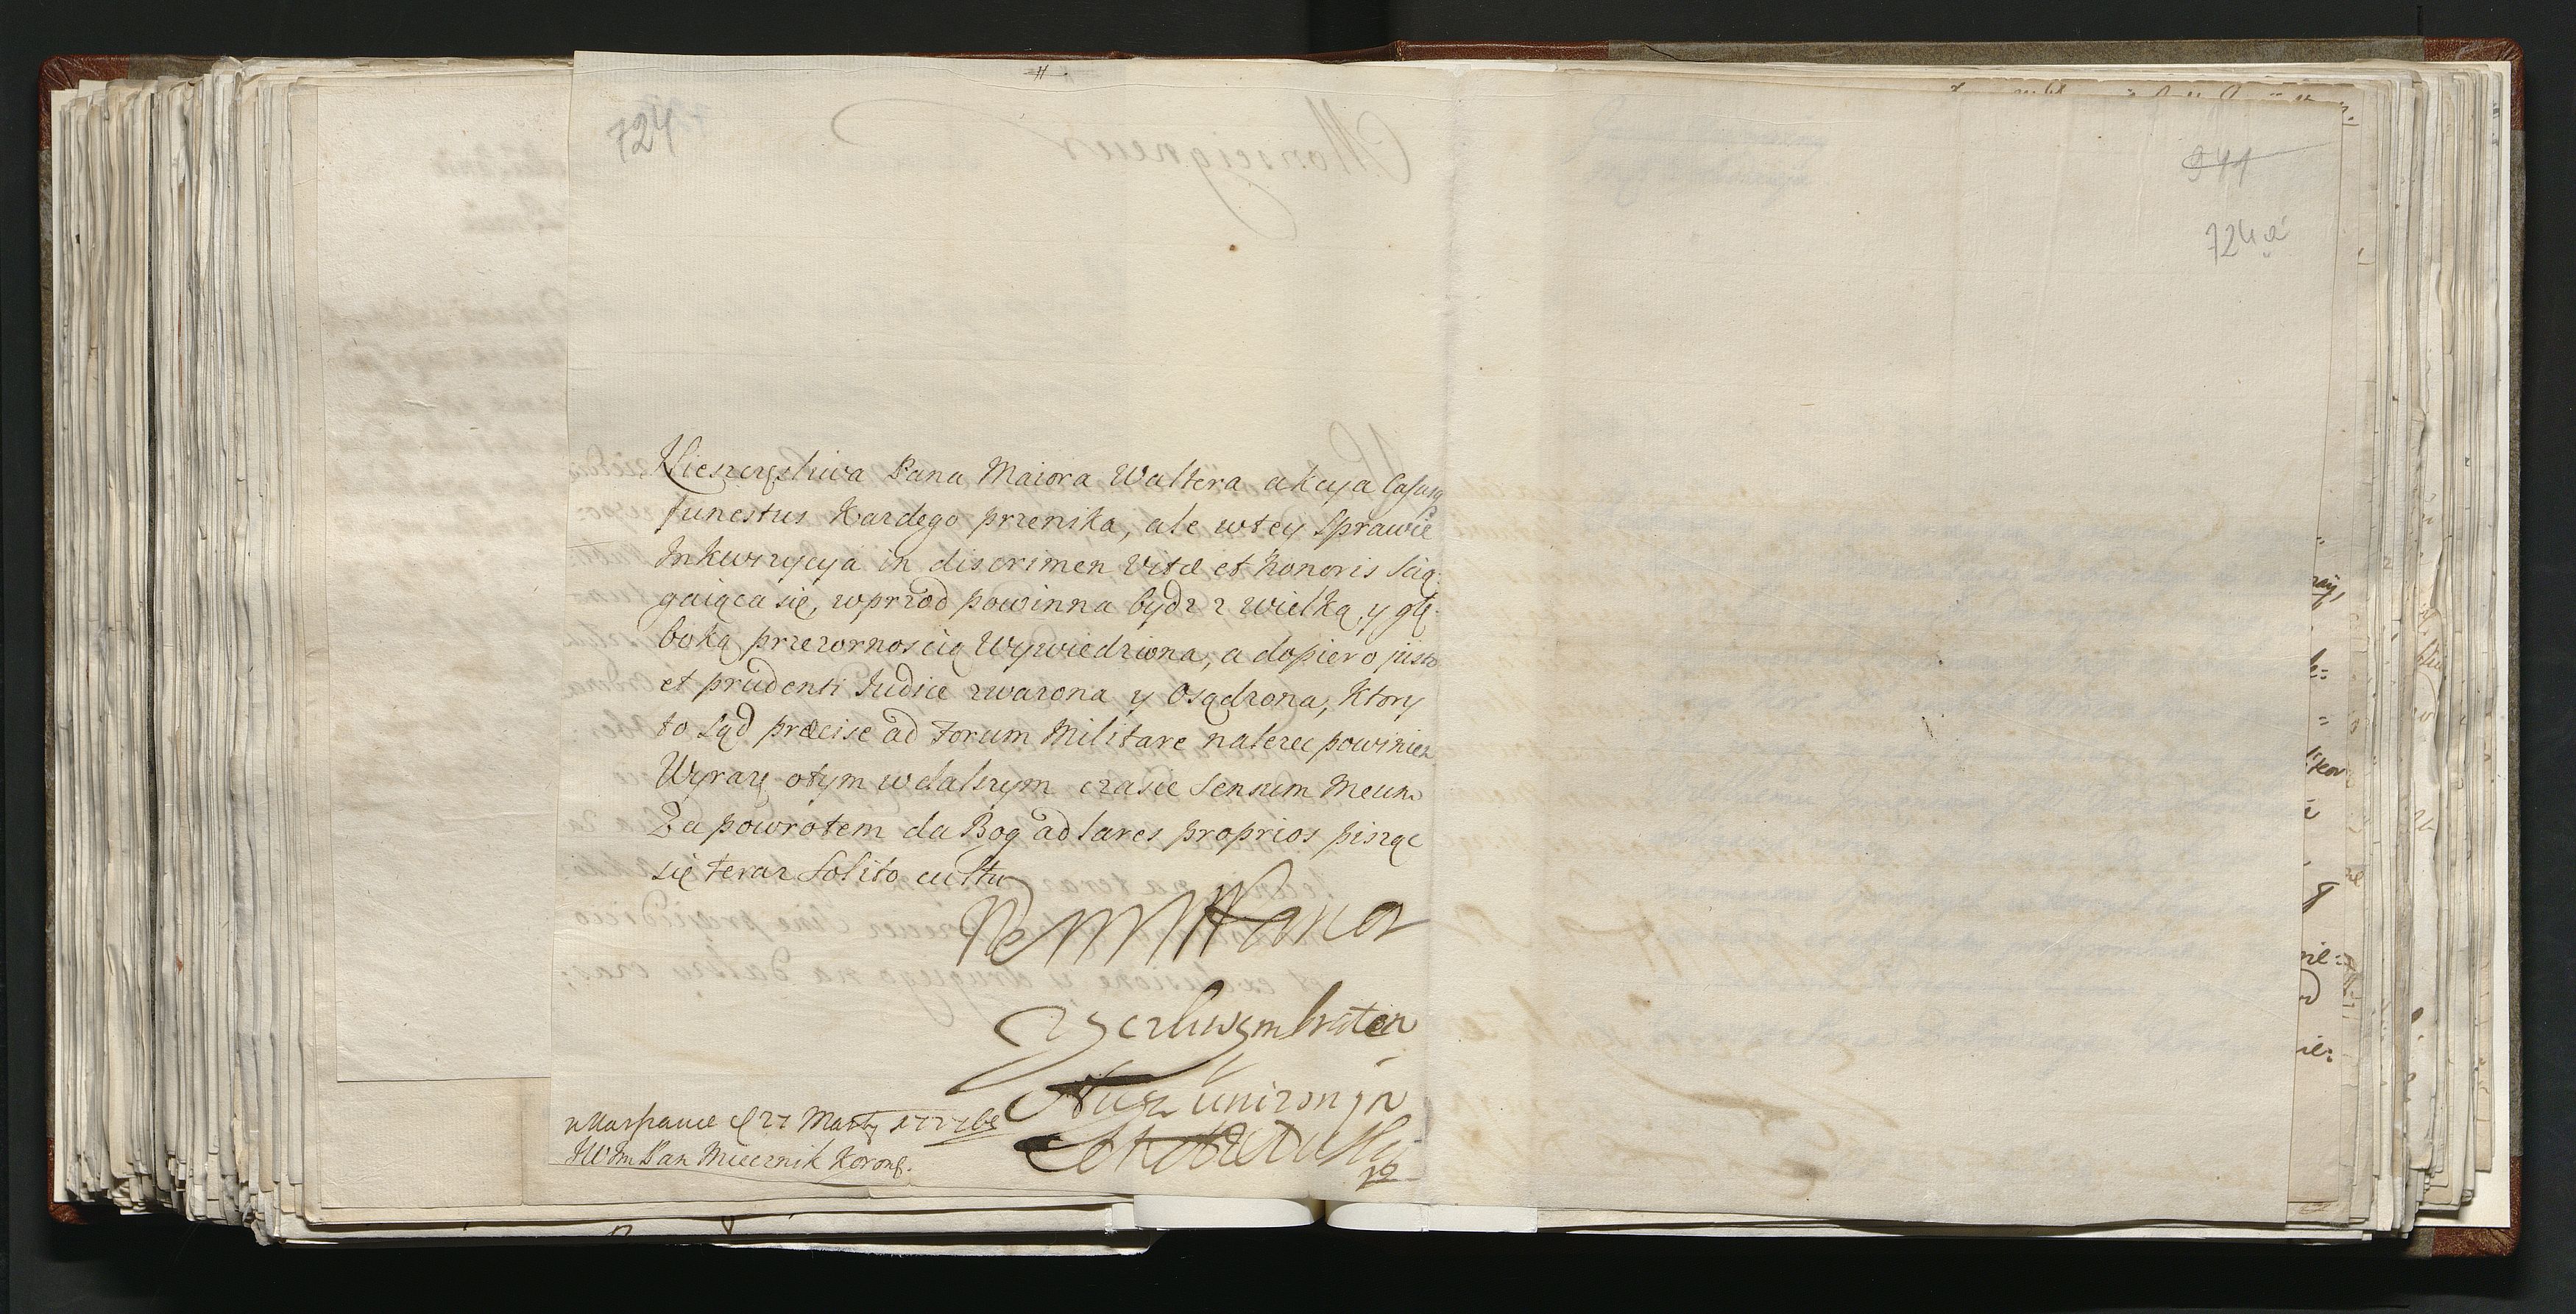 724
944
724a
Nieszczęśliwa Pana Maiora Waltera akcya Casusq
funestus Kazdego przenika, ale wtey Sprawie
Inkwizycya in discrimen Vitæ et honoris scią-
gaiąca się, wprzod powinna bydz z wielką, y głę-
boką przezornoscią Wywiedziona, a dopiero justo
et prudenti Iudice zwazona y Osądzona, Ktory
to Sąd præcise ad Forum Militare nalezec powinien
Wyrazę otym wdalszym czasie Sensum Meum
Za powrotem da Bog ad lares proprios pisząc
się teraz Solito cultu
WM Pana
zczliwym bratem
Sługą unizonym
d 27 Marty
JWIm Pan Miecznik Koronny.